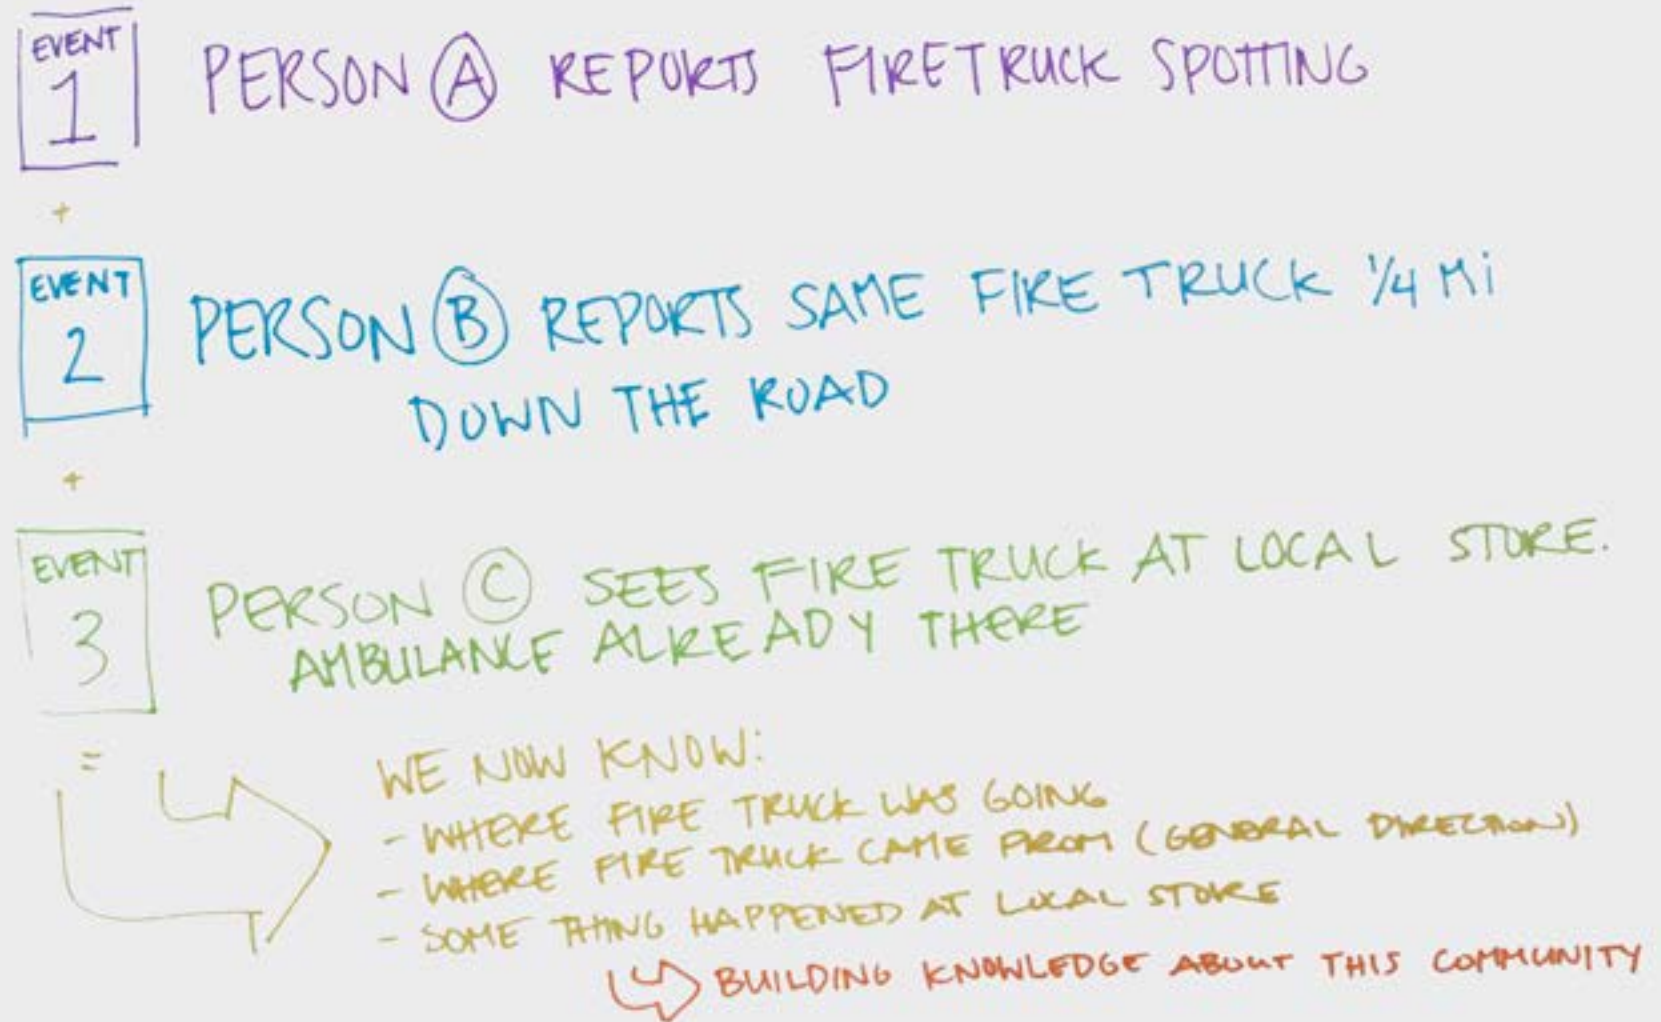 EVENT
1
PERSON A REPORTS FIRETRUCK SPOTTING
+
EVENT
2
PERSON B REPORTS SAME FIRE TRUCK 1/4 Mi
DOWN THE ROAD
+
EVENT
3
PERSON C SEES FIRE TRUCK AT LOCAL STORE.
AMBULANCE ALREADY THERE
=
WE NOW KNOW:
- WHERE FIRE TRUCK WAS GOING
- WHERE FIRE TRUCK CAME FROM (GENERAL DIRECTION)
- SOME THING HAPPENED AT LOCAL STORE
BUILDING KNOWLEDGE ABOUT THIS COMMUNITY